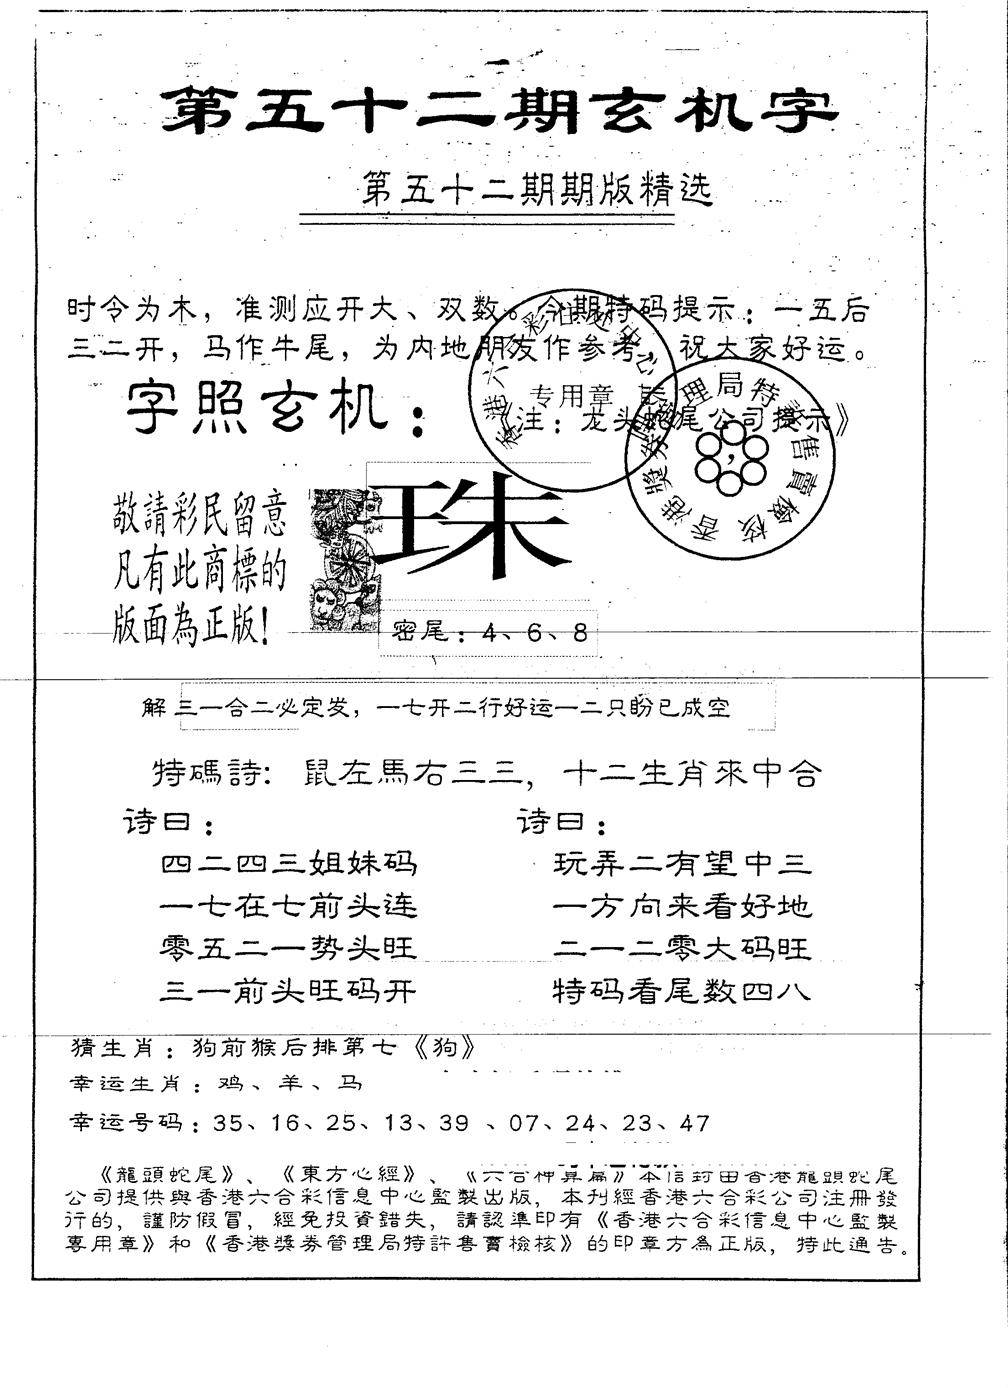 第五十二期玄机字
第五十二期期版精选
时令为木，准测应开大、双数。今期特码提示：一五后
三二开，马作牛尾，为内地朋友作参考，祝大家好运。
字照玄机：
《注：龙头蛇尾公司提示》
专用章
香港奖券管理局特許售賣檢核
敬請彩民留意
凡有此商標的
版面為正版！
珠
密尾：4、6、8
解 三一合二必定发，一七开二行好运一二只盼已成空
特碼詩：鼠左馬右三三，十二生肖來中合
诗曰：
四二四三姐妹码
一七在七前头连
零五二一势头旺
三一前头旺码开
诗曰：
玩弄二有望中三
一方向来看好地
二一二零大码旺
特码看尾数四八
猜生肖：狗前猴后排第七《狗》
幸运生肖：鸡、羊、马
幸运号码：35、16、25、13、39 、07、24、23、47
《龍頭蛇尾》、《東方心經》、《六合神算篇》本信封由香港龍頭蛇尾
公司提供與香港六合彩信息中心監製出版，本刊經香港六合彩公司注冊發
行的，謹防假冒，經免投資錯失，請認準印有《香港六合彩信息中心監製
專用章》和《香港獎券管理局特許售賣檢核》的印章方為正版，特此通告。